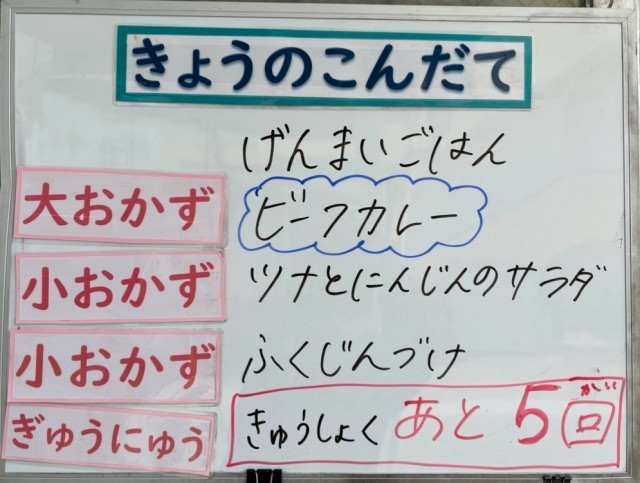 きょうのこんだて
げんまいごはん
大おかず ビーフカレー
小おかず ツナとにんじんのサラダ
小おかず ふくじんづけ
ぎゅうにゅう きゅうしょく あと 5回
かい